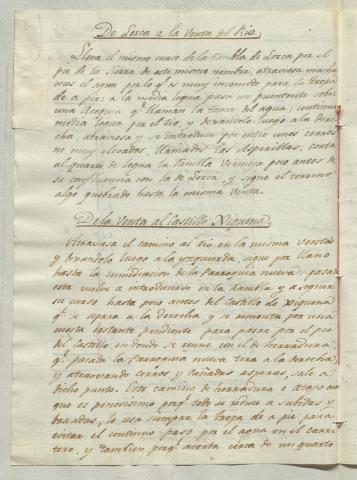 De Lorca a la Venta del Rio.
Lleva el mismo curso de la Rambla de Lorca por el
pie de la Sierra de este mismo nombre, atraviesa muchas
veces el agua por lo qe. es muy incomodo para la tropa
de a pie: a la media legua pasa un puentecito sobre
una Acequia qe. llaman la toma del agua; continua
media legua por el Rio, y dexandolo luego a la dere-
cha, atraviesa ò se introduce por entre unos cerros
no muy elevados, llamados las Asperillas, corta
al quarto de legua la Rambla Vermeja poco antes de
su confluencia con la de Lorca, y sigue el terreno
algo quebrado hasta la misma Venta.
De la Venta al Castillo Xiquena.
Atraviesa el camino al Rio en la misma Venta
y dexandolo luego a la izquierda, sigue por llano
hasta la inmediacion de la Parroquia nueva, pasada
esta vuelve a introducirse en la Rambla y a seguir
su curso hasta poco antes del Castillo de Xiquena
qe. se separa a la derecha y se remonta por una
cuesta bastante pendiente para pasar por el pie
del Castillo en donde se reune con el de herradura,
qe. pasada la Parroquia nueva tira a la derecha,
y atravesando cerros y cañadas asperas, sale a
dicho punto. Este camino de herradura ò atajo aun
que es penosisimo porqe. todo se reduce a subidas y
baxadas, lo usa siempre la tropa de a pie para
evitar el continuo paso por el agua en el carre-
tero, y tambien porqe. acorta cerca de un quarto